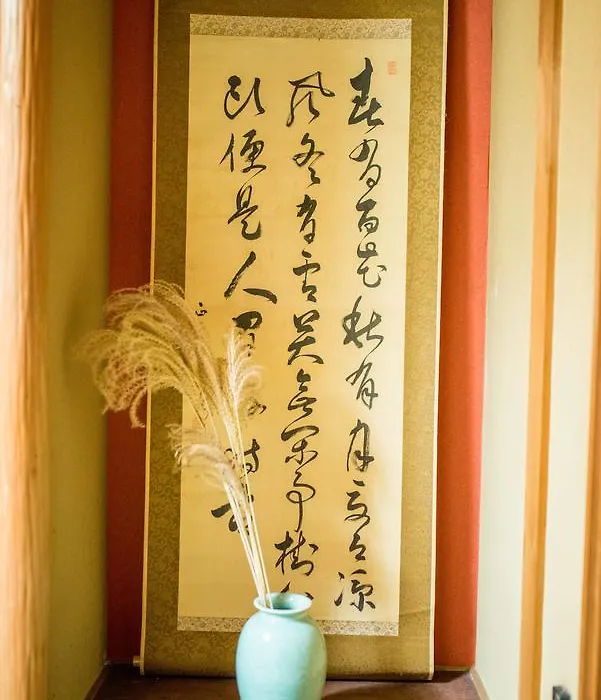 春有百花秋有月夏有涼
風冬有雪莫無閑事掛心
頭便是人間好時節